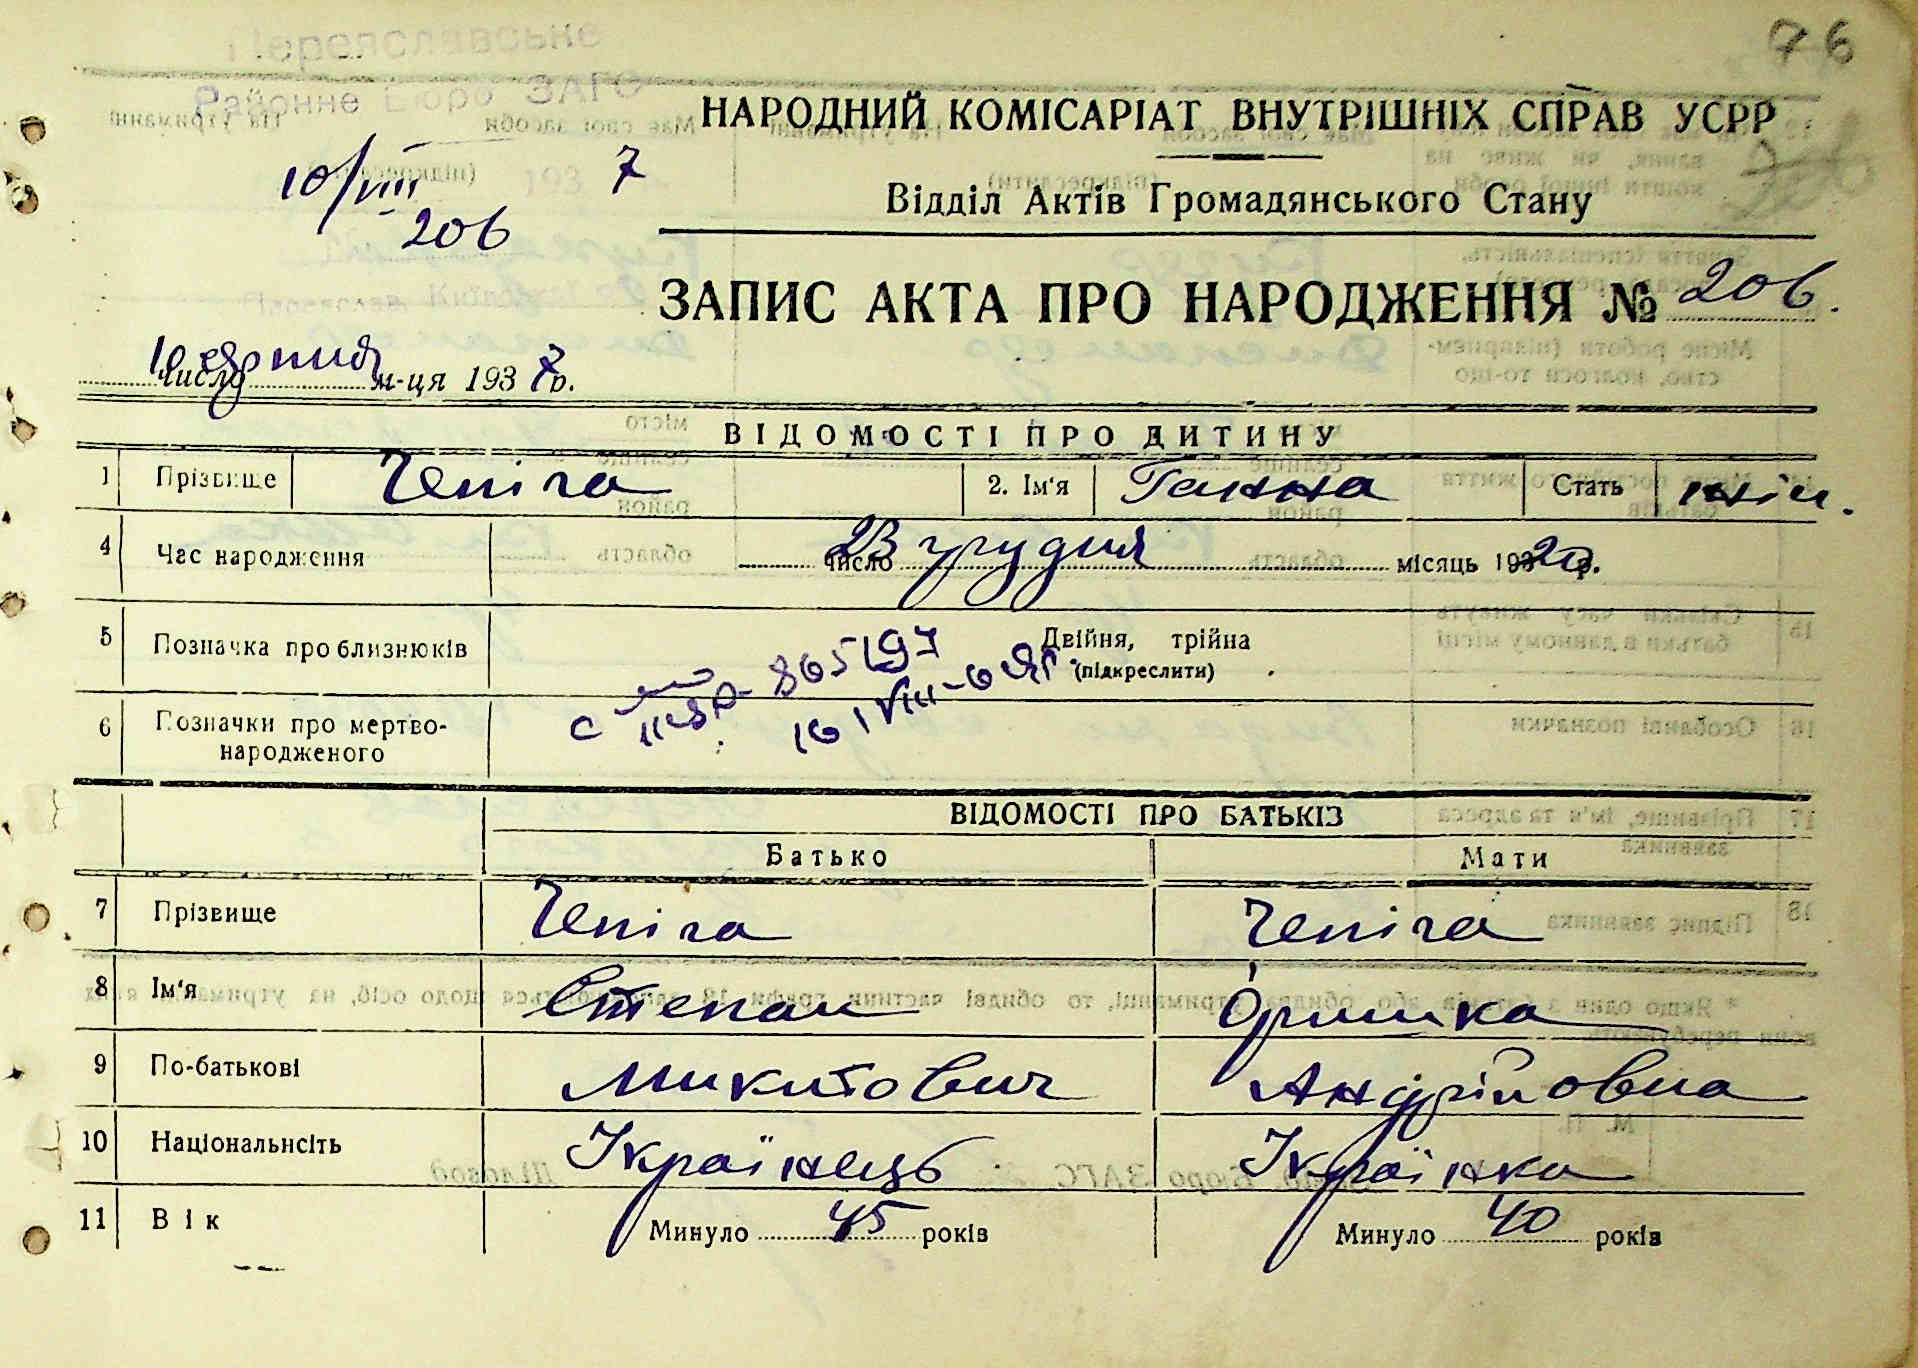 76
Переяславське
Районне Бюро ЗАГС
НАРОДНИЙ КОМІСАРІАТ ВНУТРІШНІХ СПРАВ УСРР
10/VIII 193 7
206
Відділ Актів Громадянського Стану
ЗАПИС АКТА ПРО НАРОДЖЕННЯ № 206.
10 число серпня м-ця 1937 р.
ВІДОМОСТІ ПРО ДИТИНУ
1 Прізвище Чепіга 2. Ім'я Ганна Стать жін.
4 Час народження 23 число грудня місяць 1920 р.
5 Позначка про близнюків Двійня, трійна
(підкреслити)
6 Позначки про мертво-
народженого
ВІДОМОСТІ ПРО БАТЬКІВ
Батько Мати
7 Прізвище Чепіга Чепіга
8 Ім'я Степан Оришка
9 По-батькові Микитович Андрійовна
10 Національнсіть Українець Українка
11 Вік Минуло 45 років Минуло 40 років